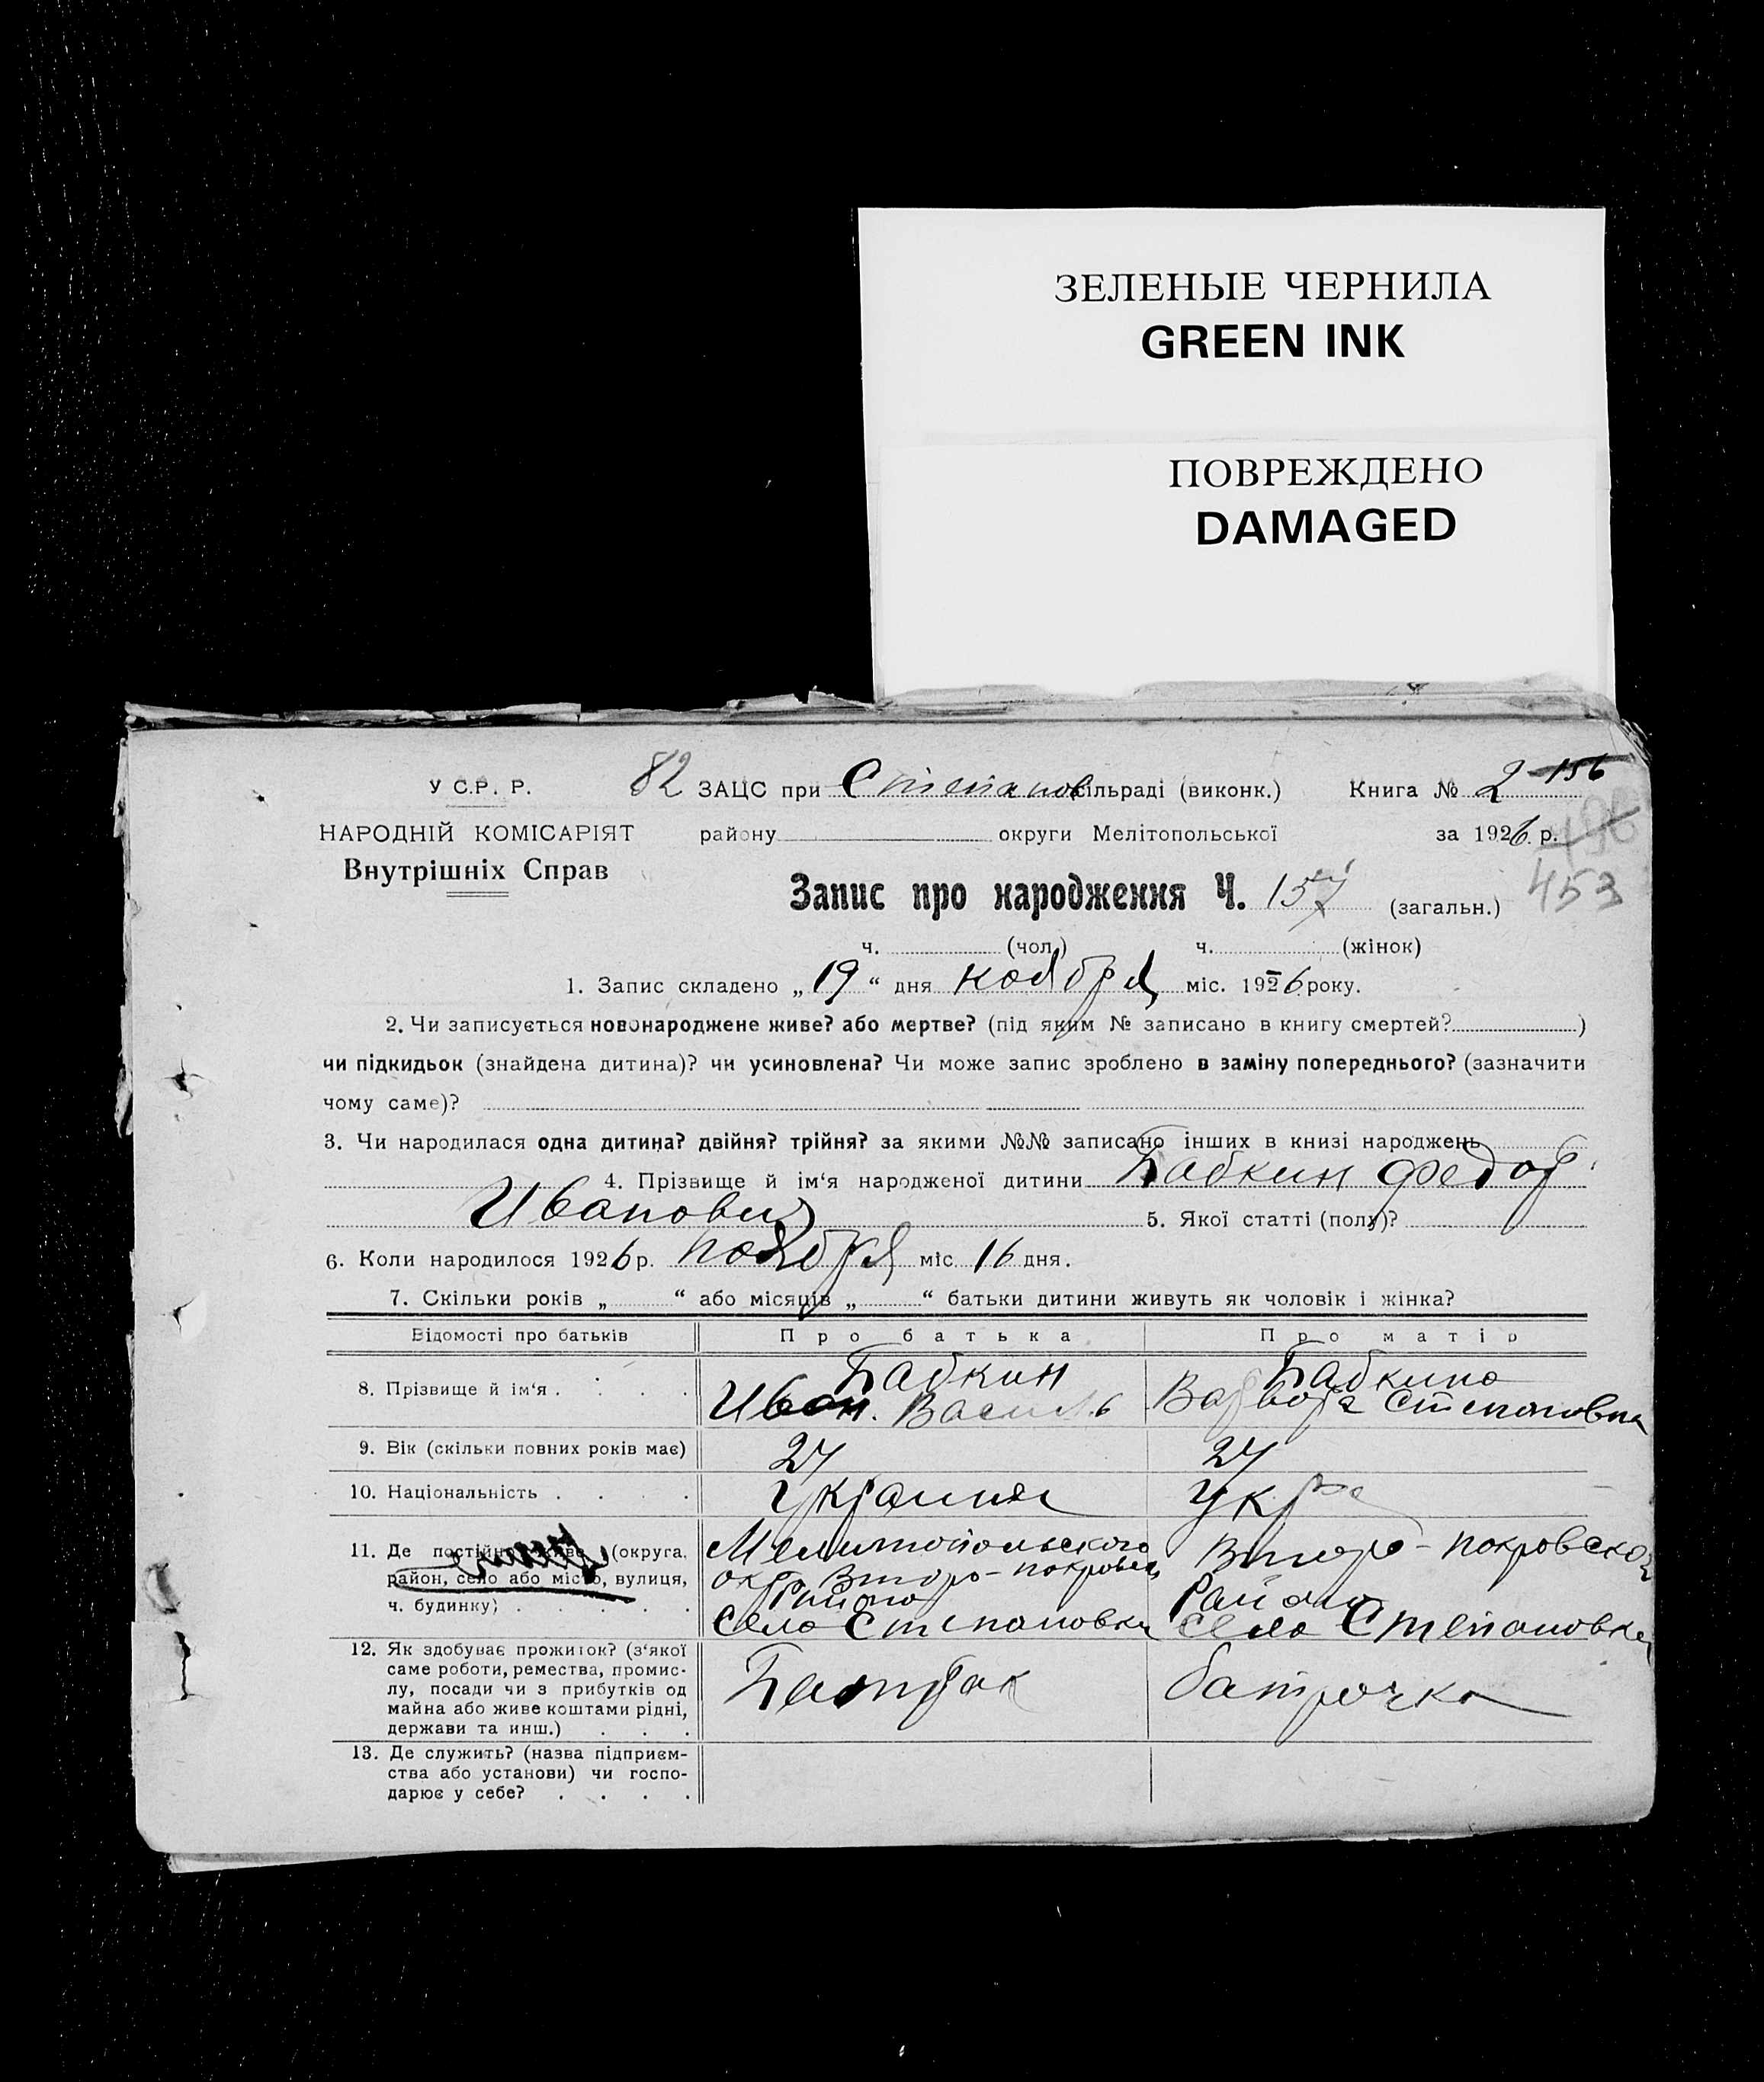 ЗЕЛЕНЫЕ ЧЕРНИЛА
GREEN INK
ПОВРЕЖДЕНО
DAMAGED
У С.Р. Р. 82 ЗАЦС при Степанов сільраді (виконк.) Книга № 2 156
НАРОДНІЙ КОМІСАРІЯТ району округи Мелітопольської за 1926 р.
Внутрішніх Справ
453
Запис про народження Ч. 157 (загальн.)
ч. (чол.) ч. (жінок)
1. Запис складено „19“ дня ноября міс. 1926 року.
2. Чи записується новонароджене живе? або мертве? (під яким № записано в книгу смертей? )
чи підкидьок (знайдена дитина)? чи усиновлена? Чи може запис зроблено в заміну попереднього? (зазначити
чому саме)?
3. Чи народилася одна дитина? двійня? трійня? за якими №№ записано інших в книзі народжень
4. Прізвище й ім‘я народженої дитини Бабкин Федор
Иванович 5. Якої статті (полу)?
6. Коли народилося 1926 р. ноября міс. 16 дня.
7. Скільки років „ “ або місяців „ “ батьки дитини живуть як чоловік і жінка?
Відомості про батьків Про батька Про матір
8. Прізвище й ім‘я . . . . Бабкин Иван. Василь Бабкина Варвара Степановна
9. Вік (скільки повних років має) 27 27
10. Національність . . . . Украинец Укр
11. Де постійно живе (округа, Мелитопольского Второ-покровского
район, село або місто, вулиця, окр. Второ-покровск района Района
ч. будинку) . . . . . село Степановка село Степановка
12. Як здобуває прожиток? (з‘якої
саме роботи, ремества, промис-
лу, посади чи з прибутків од Батрак батрачка
майна або живе коштами рідні,
держави та инш.) . . .
13. Де служить? (назва підприєм-
ства або установи) чи госпо-
дарює у себе? . . . .